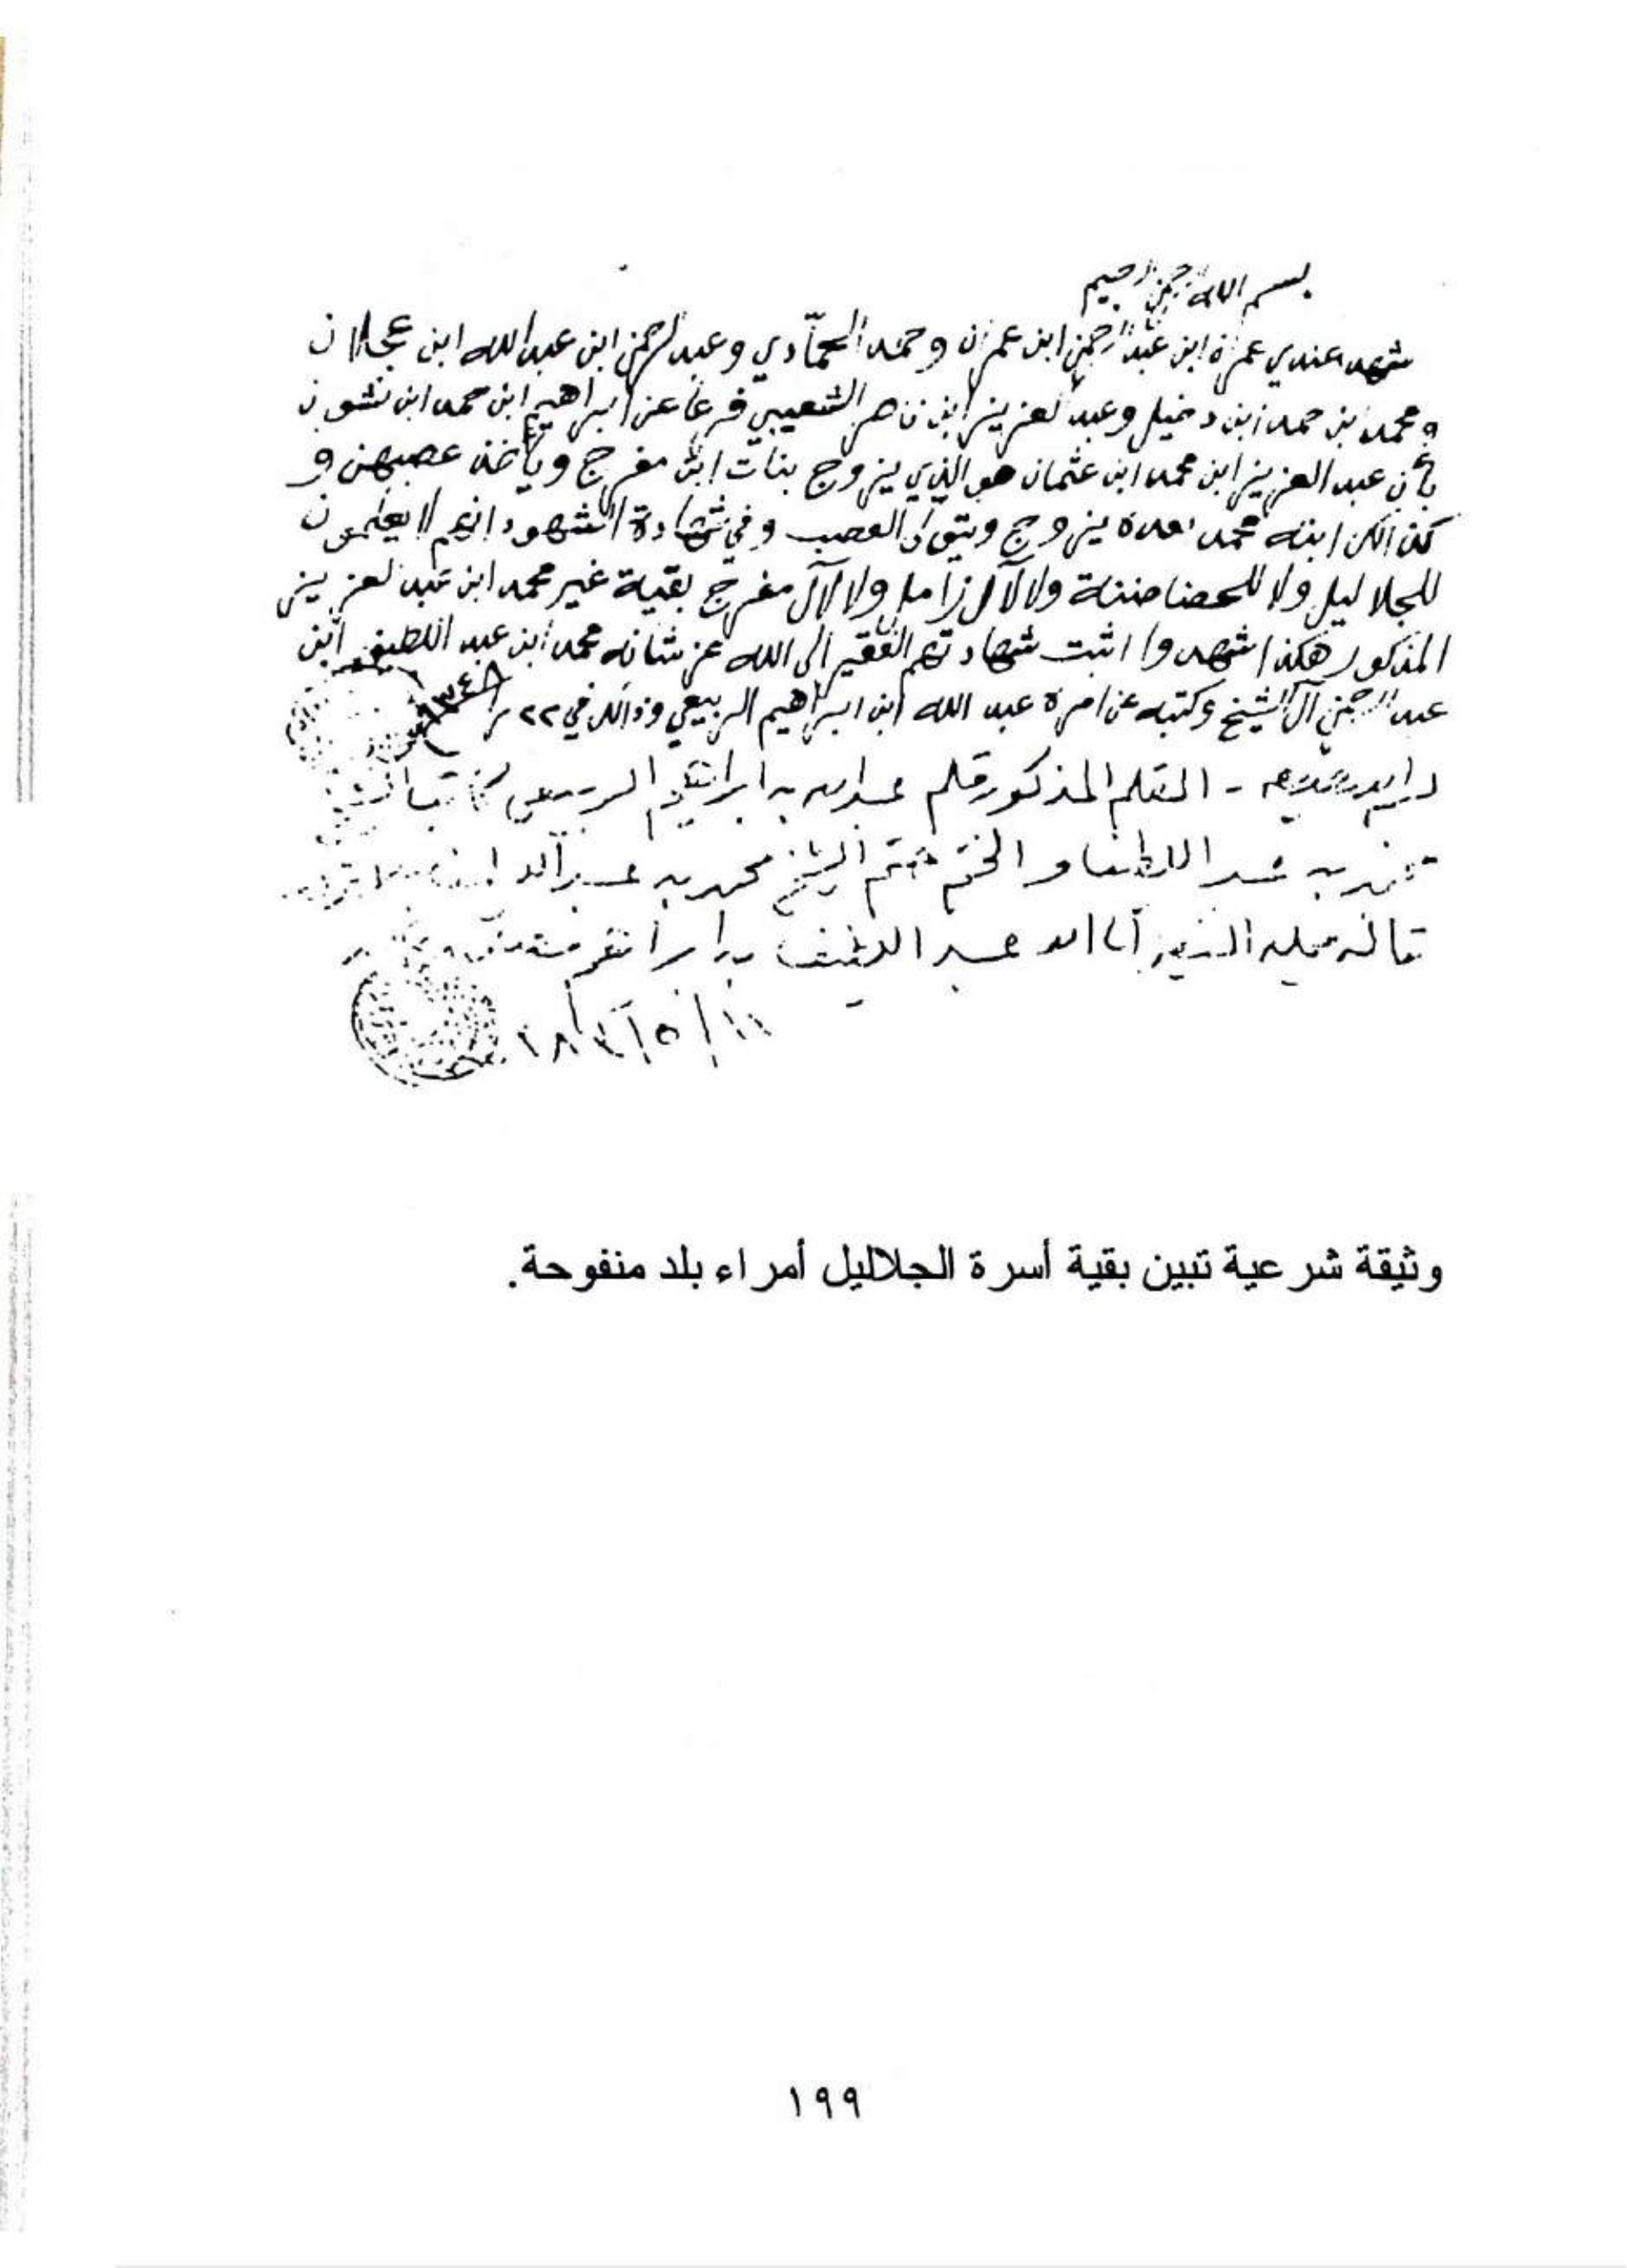 بسم الله الرحمن الرحيم
شهد عندي عمران ابن عبد الرحمن ابن عمران وحمد الحمّادي وعبد الرحمن ابن عبد الله ابن عجلان
ومحمد ابن حمد ابن دخيل وعبد العزيز ابن ناصر الشعيبي فرعا عن ابراهيم ابن محمد ابن نشوان
بأن عبد العزيز ابن محمد ابن عثمان هو الذي يزوج بنات ابن مفرج وياخذ عصبهن و
كذالك ابنه محمد بعده يزوج ويتولا العصب وفي شهادة الشهود انهم لا يعلمون
للجلاليل ولا ولا لآل زامل ولا لآل مفرج بقية غير محمد ابن عبد العزيز
المذكور هكذا شهدوا اثبت شهادتهم الفقير الى الله عز شانه محمد ابن عبد اللطيف ابن
عبد الرحمن آل الشيخ وكتبه عن امره عبد الله ابن ابراهيم الربيعي وذالك في ٢٢ ١٣٤٨
القلم المذكور قلم عبد الله بن ابراهيم الربيعي كاتب
بن عبد اللطيف والختم ختم الشيخ محمد بن عبد
قاله الفقير الى الله عبد اللطيف بن ابراهيم
وثيقة شرعية تبين بقية أسرة الجلاليل أمراء بلد منفوحة.
١٩٩